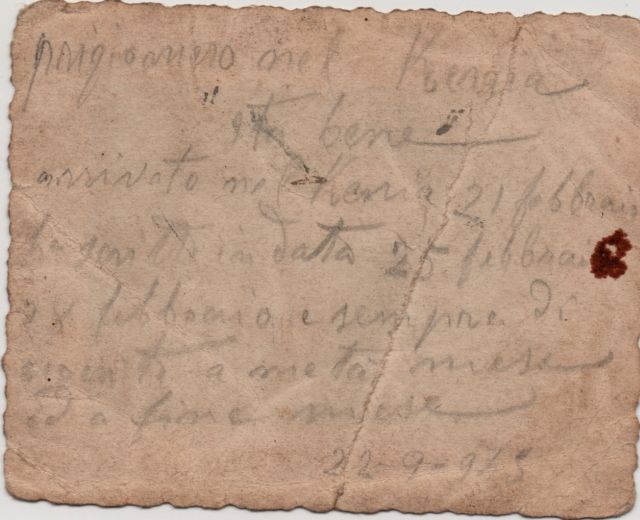 prigioniero nel Kenia
sta bene
arrivato nel Kenia 21 febbraio
ha scritto in data 25 febbraio
28 febbraio e sempre di
a metà mese
ed a fine mese
22-9-943